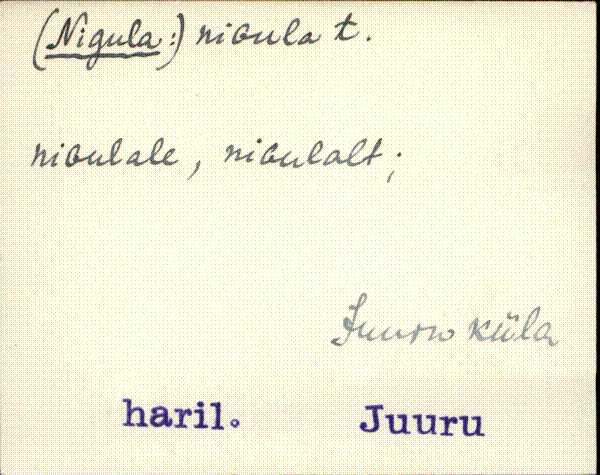 (Nigula:) niGula t.
niGulale, niGulalt;
Juuru küla
haril. Juuru